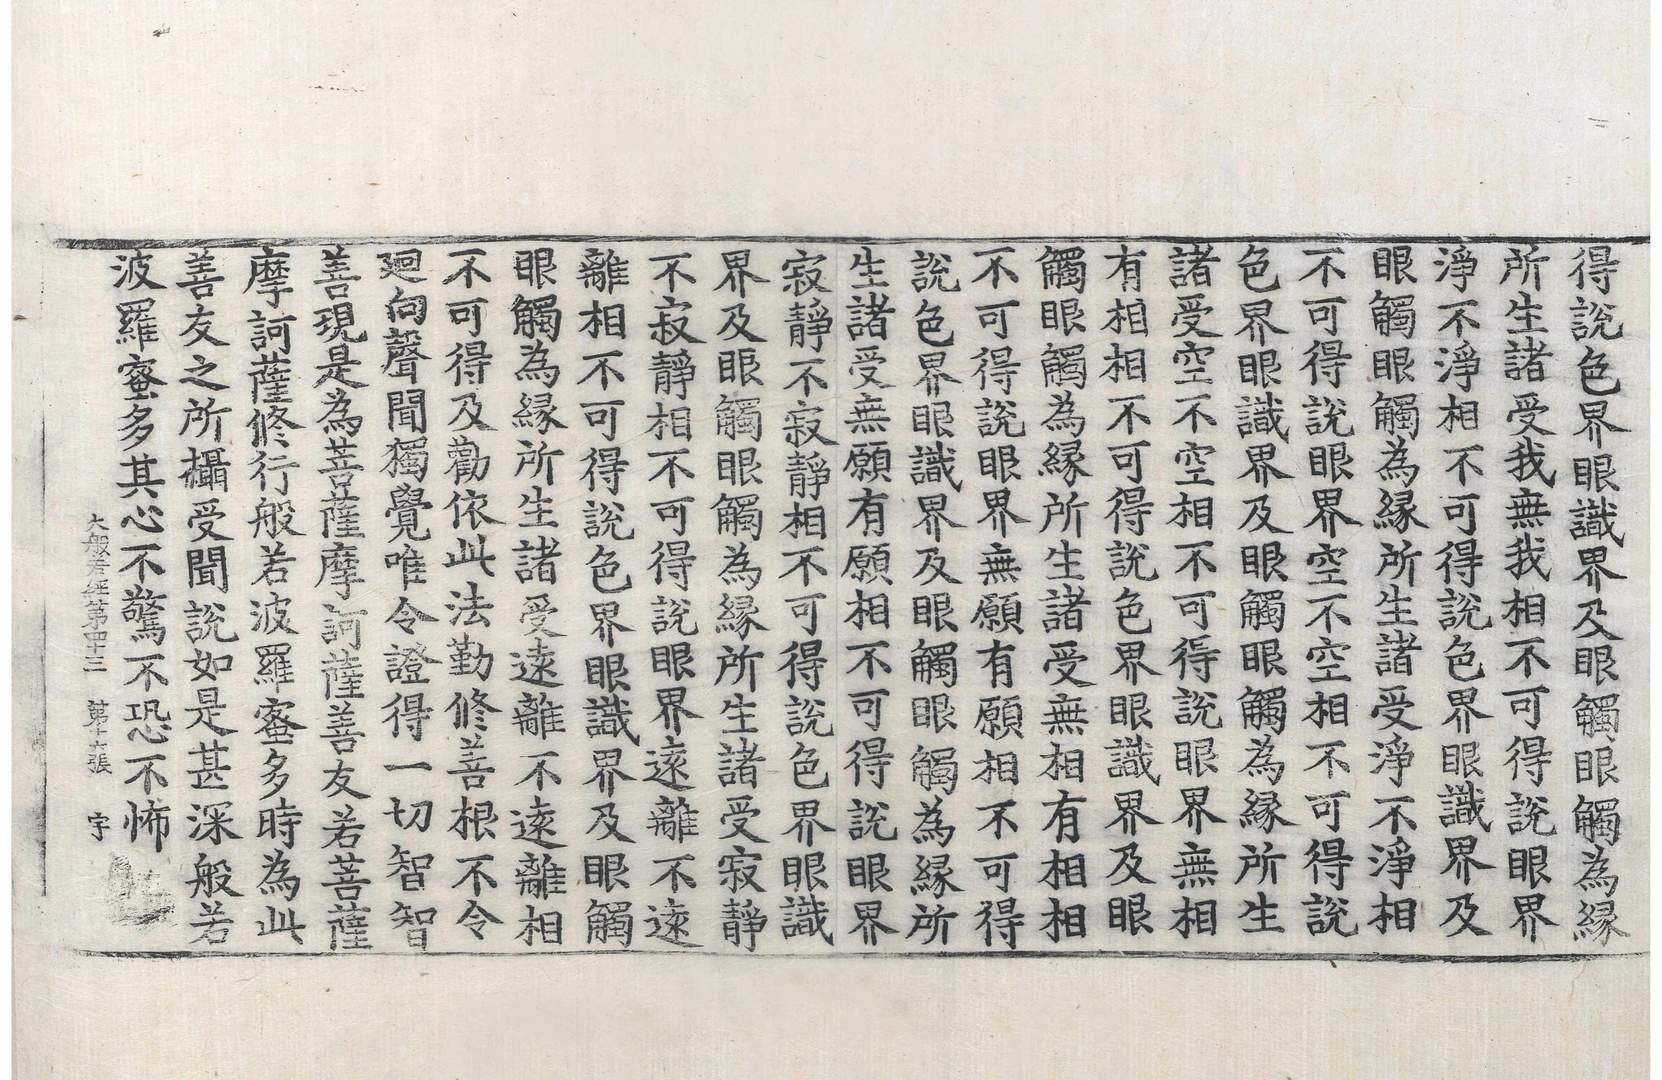 得說色界眼識界及眼觸眼觸為緣
所生諸受我無我相不可得說眼界
淨不淨相不可得說色界眼識界及
眼觸眼觸為緣所生諸受淨不淨相
不可得說眼界空不空相不可得說
色界眼識界及眼觸眼觸為緣所生
諸受空不空相不可得說眼界無相
有相相不可得說色界眼識界及眼
觸眼觸為緣所生諸受無相有相相
不可得說眼界無願有願相不可得
說色界眼識界及眼觸眼觸為緣所
生諸受無願有願相不可得說眼界
寂靜不寂靜相不可得說色界眼識
界及眼觸眼觸為緣所生諸受寂靜
不寂靜相不可得說眼界遠離不遠
離相不可得說色界眼識界及眼觸
眼觸為緣所生諸受遠離不遠離相
不可得及勸依此法勤修善根不令
迴向聲聞獨覺唯令證得一切智智
善現是為菩薩摩訶薩善友若菩薩
摩訶薩修行般若波羅蜜多時為此
善友之所攝受聞說如是甚深般若
波羅蜜多其心不驚不恐不怖
大般若經第四十三 第十六張 字